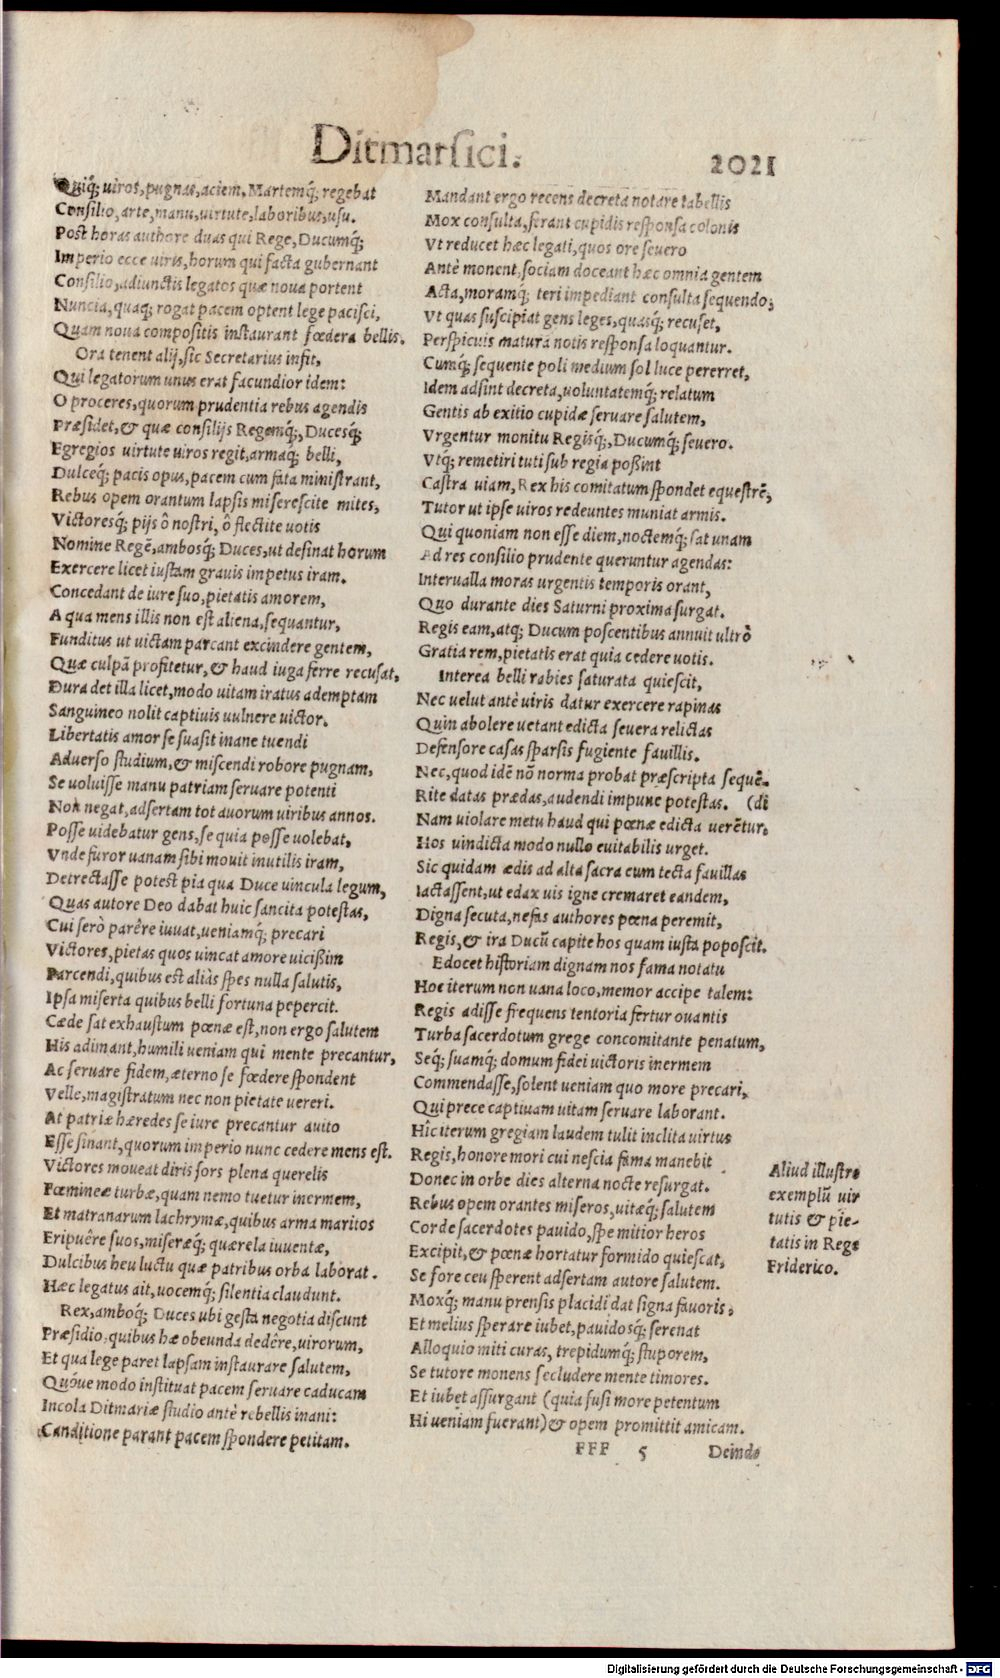 Ditmarsici.
2021
Quiq́; uiros, pugnas, aciem, Martemq́; regebat
Consilio, arte, manu, uirtute, laboribus, usu.
Post horas authore duas qui Rege, Ducumq́;
Imperio ecce uiris, horum qui facta gubernant
Consilio, adiunctis legatos quæ noua portent
Nuncia, quaq; rogat pacem optent lege pacisci,
Quam noua compositis instaurant fœdera bellis.
Ora tenent alij, sic Secretarius infit,
Qui legatorum unus erat facundior idem:
O proceres, quorum prudentia rebus agendis
Præsidet, & quæ consilijs Regemq́;, Ducesq́;
Egregios uirtute uiros regit, armaq́; belli,
Dulceq́; pacis opus, pacem cum fata ministrant,
Rebus opem orantum lapsis miserescite mites,
Victoresq́; pijs ô nostri, ô flectite uotis
Nomine Regẽ, ambosq́; Duces, ut desinat horum
Exercere licet iustam grauis impetus iram.
Concedant de iure suo, pietatis amorem,
A qua mens illis non est aliena, sequantur,
Funditus ut uictam parcant excindere gentem,
Quæ culpã profitetur, & haud iuga ferre recusat,
Dura det illa licet, modo uitam iratus ademptam
Sanguineo nolit captiuis uulnere uictor.
Libertatis amor se suasit inane tuendi
Aduerso studium, & miscendi robore pugnam,
Se uoluisse manu patriam seruare potenti
Non negat, adsertam tot auorum uiribus annos.
Posse uidebatur gens, se quia posse uolebat,
Vnde furor uanam sibi mouit inutilis iram,
Detrectasse potest pia qua Duce uincula legum,
Quas autore Deo dabat huic sancita potestas,
Cui serò parêre iuuat, ueniamq́; precari
Victores, pietas quos uincat amore uicißim
Parcendi, quibus est aliàs spes nulla salutis,
Ipsa miserta quibus belli fortuna pepercit.
Cæde sat exhaustum pœnæ est, non ergo salutem
His adimant, humili ueniam qui mente precantur,
Ac seruare fidem, æterno se fœdere spondent
Velle, magistratum nec non pietate uereri.
At patriæ hæredes se iure precantur auito
Esse sinant, quorum imperio nunc cedere mens est.
Victores moueat diris sors plena querelis
Fœmineæ turbæ, quam nemo tuetur inermem,
Et matranarum lachrymæ, quibus arma maritos
Eripuêre suos, miseræq́; quærela iuuentæ,
Dulcibus heu luctu quæ patribus orba laborat.
Hæc legatus ait, uocemq́; silentia claudunt.
Rex, amboq́; Duces ubi gesta negotia discunt
Præsidio, quibus hæ obeunda dedêre, uirorum,
Et qua lege paret lapsam instaurare salutem,
Quóue modo instituat pacem seruare caducam
Incola Ditmariæ studio antè rebellis inani:
Canditione parant pacem spondere petitam.
Mandant ergo recens decreta notare tabellis
Mox consulta, ferant cupidis responsa colonis
Vt reducet hæc legati, quos ore seuero
Antè monent, sociam doceant hæc omnia gentem
Acta, moramq́; teri impediant consulta sequendo;
Vt quas suscipiat gens leges, quasq́; recuset,
Perspicuis matura notis responsa loquantur.
Cumq́; sequente poli medium sol luce pererret,
Idem adsint decreta, uoluntatemq́; relatum
Gentis ab exitio cupidæ seruare salutem,
Vrgentur monitu Regisq́;, Ducumq́; seuero.
Vtq́; remetiri tuti sub regia poßint
Castra uiam, Rex his comitatum spondet equestrẽ,
Tutor ut ipse uiros redeuntes muniat armis.
Qui quoniam non esse diem, noctemq́; sat unam
Ad res consilio prudente queruntur agendas:
Interualla moras urgentis temporis orant,
Quo durante dies Saturni proxima surgat.
Regis eam, atq; Ducum poscentibus annuit ultrò
Gratia rem, pietatis erat quia cedere uotis.
Interea belli rabies saturata quiescit,
Nec uelut antè uiris datur exercere rapinas
Quin abolere uetant edicta seuera relictas
Defensore casas sparsis fugiente fauillis.
Nec, quod idẽ nõ norma probat præscripta sequẽ-
Rite datas prædas, audendi impune potestas. (di
Nam uiolare metu haud qui pœnæ edicta uerẽtur,
Hos uindicta modo nullo euitabilis urget.
Sic quidam ædis ad alta sacra cum tecta fauillas
Iactassent, ut edax uis igne cremaret eandem,
Digna secuta, nefas authores pœna peremit,
Regis, & ira Ducũ capite hos quam iusta poposcit.
Edocet historiam dignam nos fama notatu
Hoc iterum non uana loco, memor accipe talem:
Regis adisse frequens tentoria fertur ouantis
Turba sacerdotum grege concomitante penatum,
Seq́; suamq́; domum fidei uictoris inermem
Commendasse, solent ueniam quo more precari,
Qui prece captiuam uitam seruare laborant.
Hîc iterum gregiam laudem tulit inclita uirtus
Regis, honore mori cui nescia fama manebit
Donec in orbe dies alterna nocte resurgat.
Rebus opem orantes miseros, uitæq́; salutem
Corde sacerdotes pauido, spe mitior heros
Excipit, & pœnæ hortatur formido quiescat,
Se fore ceu sperent adsertam autore salutem.
Moxq́; manu prensis placidi dat signa fauoris,
Et melius sperare iubet, pauidosq́; serenat
Alloquio miti curas, trepidumq́; stuporem,
Se tutore monens secludere mente timores.
Et iubet assurgant (quia fusi more petentum
Hi ueniam fuerant) & opem promittit amicam.
Aliud illustre
exemplũ uir
tutis & pie-
tatis in Rege
Friderico.
FFF 5
Deinde
Digitalisierung gefördert durch die Deutsche Forschungsgemeinschaft - DFG